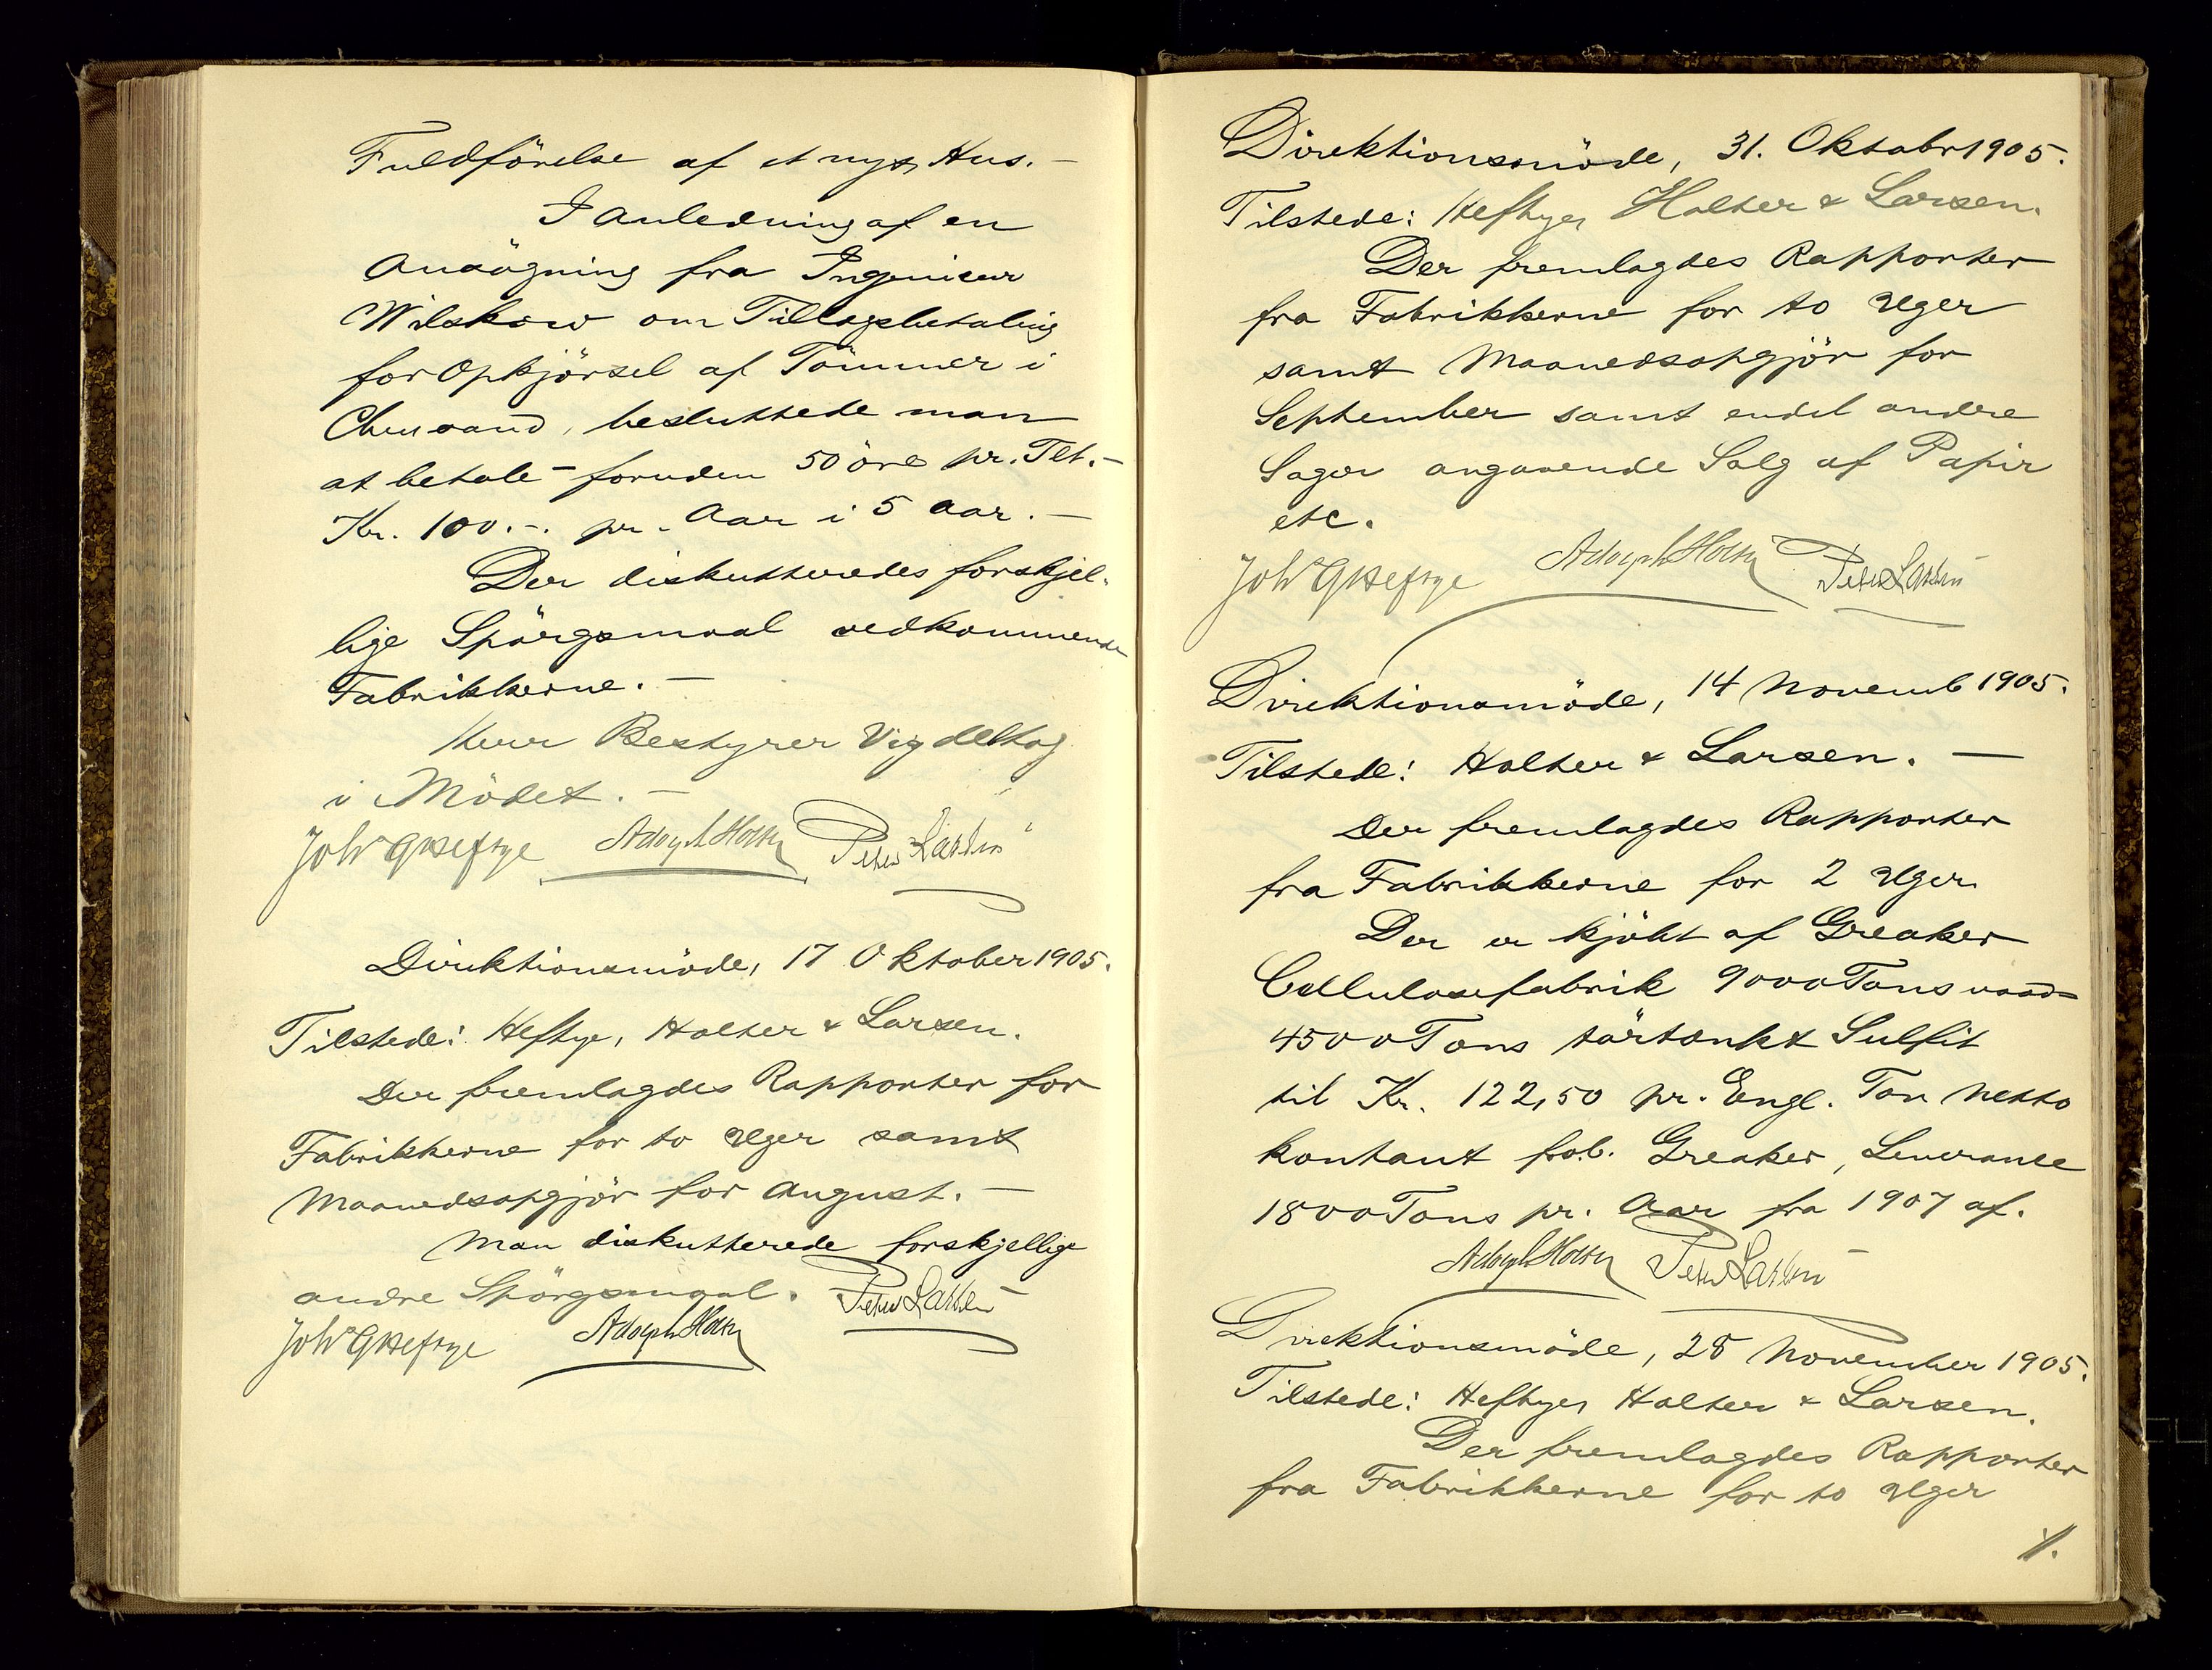 Fuldförelse af et nyt Hus. –
I Anledning af en
Ansögning fra Ingenieur
Wilskow om Tillægsbetaling
for Opkjörsel af Tömmer i
besluttede man
at betale – foruden 50 öre pr. Tlt. –
Kr. 100.-. pr. Aar i 5 Aar. –
Der diskutteredes forskjel-
lige Spörgsmaal vedkommende
Fabrikkerne. –
Herr Bestyrer Vig deltog
i Mödet. –
Joh GHeftye Adolph Holter Peter Larsen
Direktionsmöde, 17 Oktober 1905.
Tilstede: Heftye, Holter & Larsen.
Der fremlagdes Rapporter for
Fabrikkerne for to Uger samt
Maanedsopgjör for August. –
Man diskutterede forskjellige
andre Spörgsmaal. Peter Larsen
Joh GHeftye Adolph Holter
Direktionsmöde, 31. Oktobr 1905.
Tilstede: Heftye, Holter & Larsen.
Der fremlagdes Rapporter
fra Fabrikkerne for to Uger
samt Maanedsopgjör for
September samt endel andre
Sager angaaende Salg af Papir
etc.
Joh GHeftye Adolph Holter Peter Larsen
Direktionsmöde, 14 Novemb 1905.
Tilstede: Holter & Larsen. –
Der fremlagdes Rapporter
fra Fabrikkerne for 2 Uger
Der er kjöbt af Greaker
Cellulosefabrik 9000 Tons vaad=
4500 Tons törtænkt Sulfit
til Kr. 122,50 pr. Engl. Ton netto
kontant fob. Greaker, Leverance
1800 Tons pr. Aar fra 1907 af.
Adolph Holter Peter Larsen
Direktionsmöde, 28 November 1905.
Tilstede: Heftye, Holter & Larsen.
Der fremlagdes Rapporter
fra Fabrikkerne for to Uger